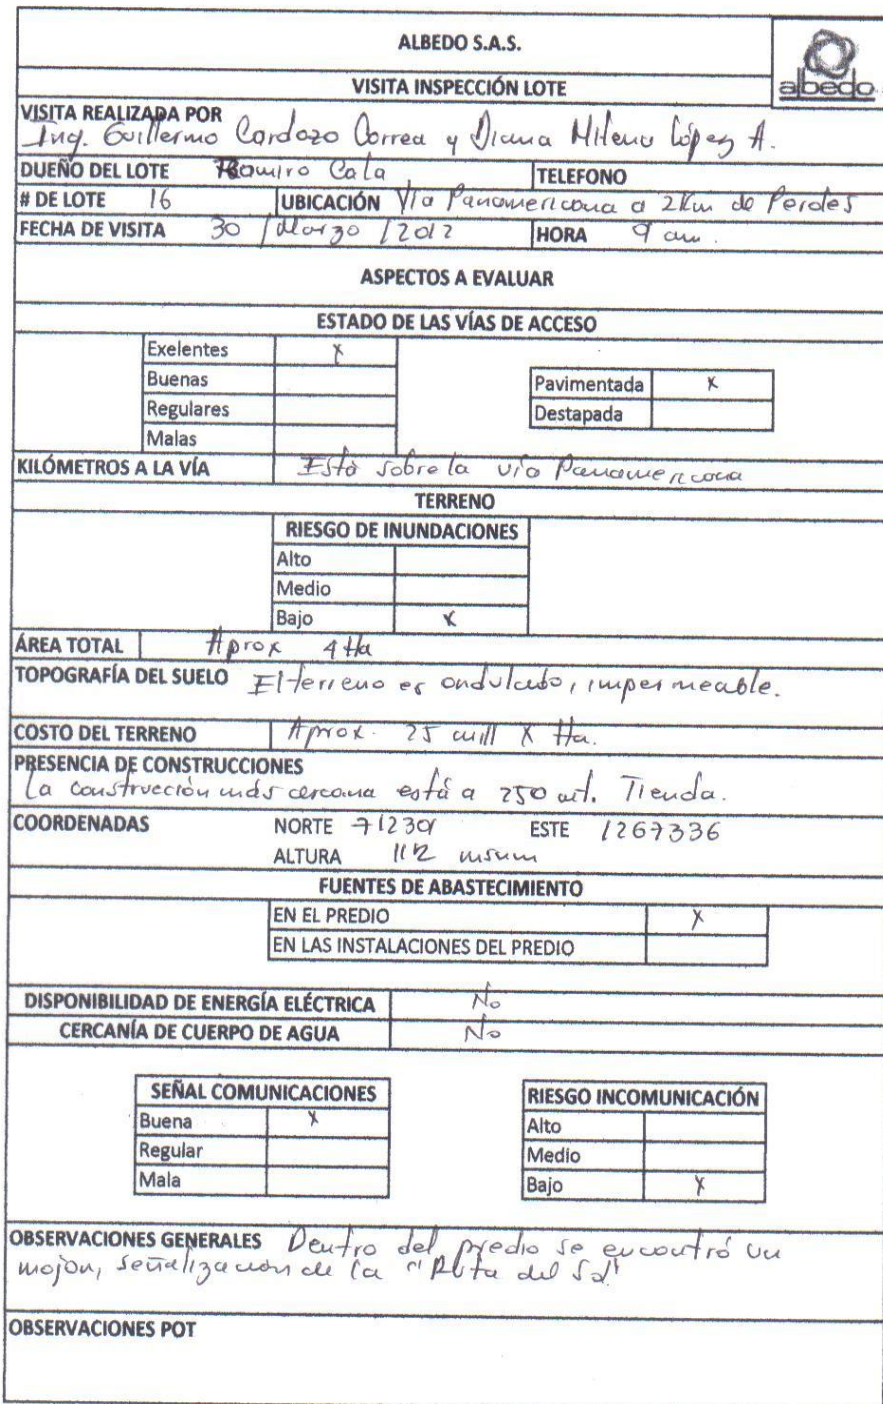 ALBEDO S.A.S.
albedo
VISITA INSPECCIÓN LOTE
VISITA REALIZADA POR
Ing. Guillermo Cardozo Correa y Diana Milena López A.
DUEÑO DEL LOTE Ramiro Cala TELEFONO
# DE LOTE 16 UBICACIÓN Vía Panamericana a 2Km de Peroles
FECHA DE VISITA 30 / Marzo / 2012 HORA 9 am.
ASPECTOS A EVALUAR
ESTADO DE LAS VÍAS DE ACCESO
Exelentes x
Buenas Pavimentada x
Regulares Destapada
Malas
KILÓMETROS A LA VÍA Está sobre la vía Panamericana
TERRENO
RIESGO DE INUNDACIONES
Alto
Medio
Bajo x
ÁREA TOTAL Aprox 4 Ha
TOPOGRAFÍA DEL SUELO El terreno es ondulado, impermeable.
COSTO DEL TERRENO Aprox. 25 mill X Ha.
PRESENCIA DE CONSTRUCCIONES
La construcción más cercana está a 250 mt. Tienda.
COORDENADAS NORTE ESTE 1267336
ALTURA 112 msnm
FUENTES DE ABASTECIMIENTO
EN EL PREDIO x
EN LAS INSTALACIONES DEL PREDIO
DISPONIBILIDAD DE ENERGÍA ELÉCTRICA No
CERCANÍA DE CUERPO DE AGUA No
SEÑAL COMUNICACIONES RIESGO INCOMUNICACIÓN
Buena x Alto
Regular Medio
Mala Bajo x
OBSERVACIONES GENERALES Dentro del predio se encontró un
mojon, señalizacion de la "Ruta del Sol"
OBSERVACIONES POT